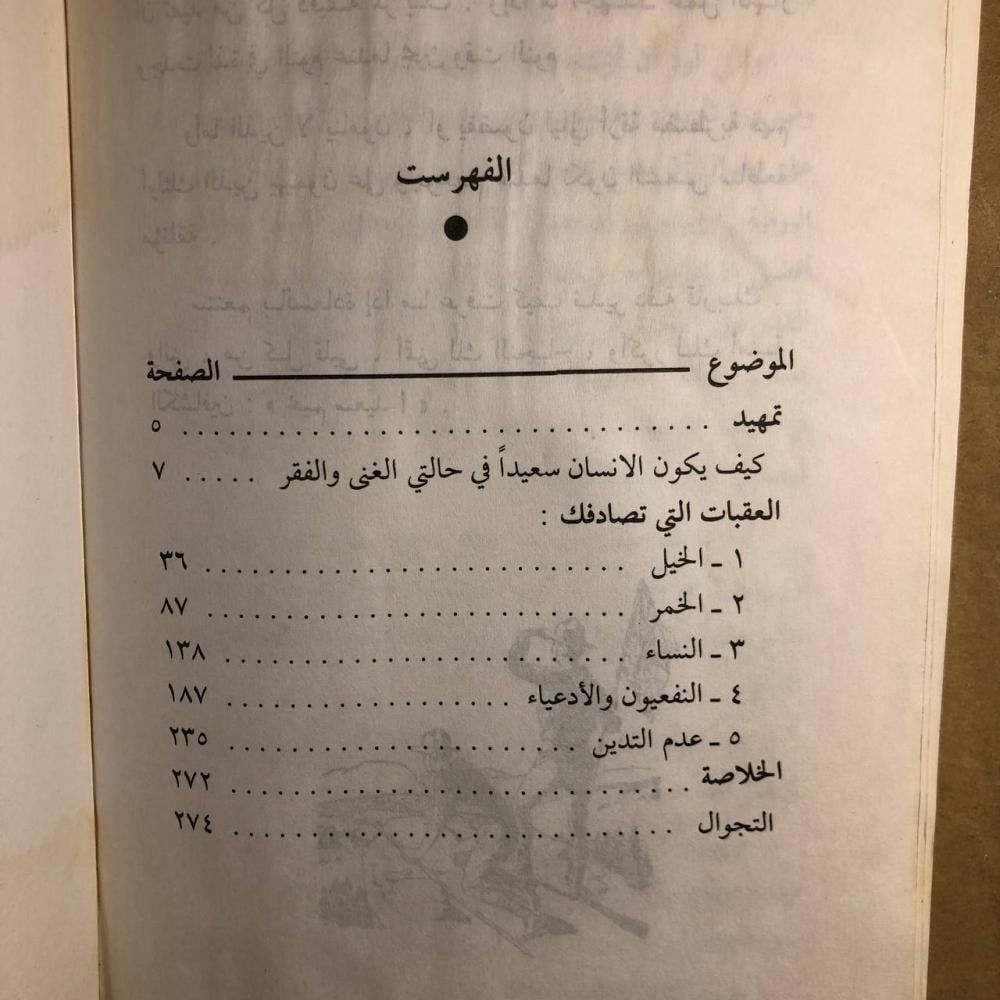 الفهرست
الموضوع الصفحة
تمهيد ................................. ٥
كيف يكون الانسان سعيداً في حالتي الغنى والفقر ..... ٧
العقبات التي تصادفك :
١ ـ الخيل ........................... ٣٦
٢ ـ الخمر ........................... ٨٧
٣ ـ النساء .......................... ١٣٨
٤ ـ النفعيون والأدعياء .................. ١٨٧
٥ ـ عدم التدين ...................... ٢٣٥
الخلاصة ............................. ٢٧٢
التجوال ............................ ٢٧٤